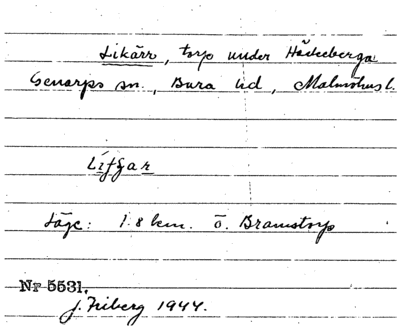 Likärr, torp under Häckeberga
Genarps sn., Bara hd, Malmöhus l.
Läge: 1.8 km. ö. Bramstorp
Nr 5531.
J. Friberg 1944.